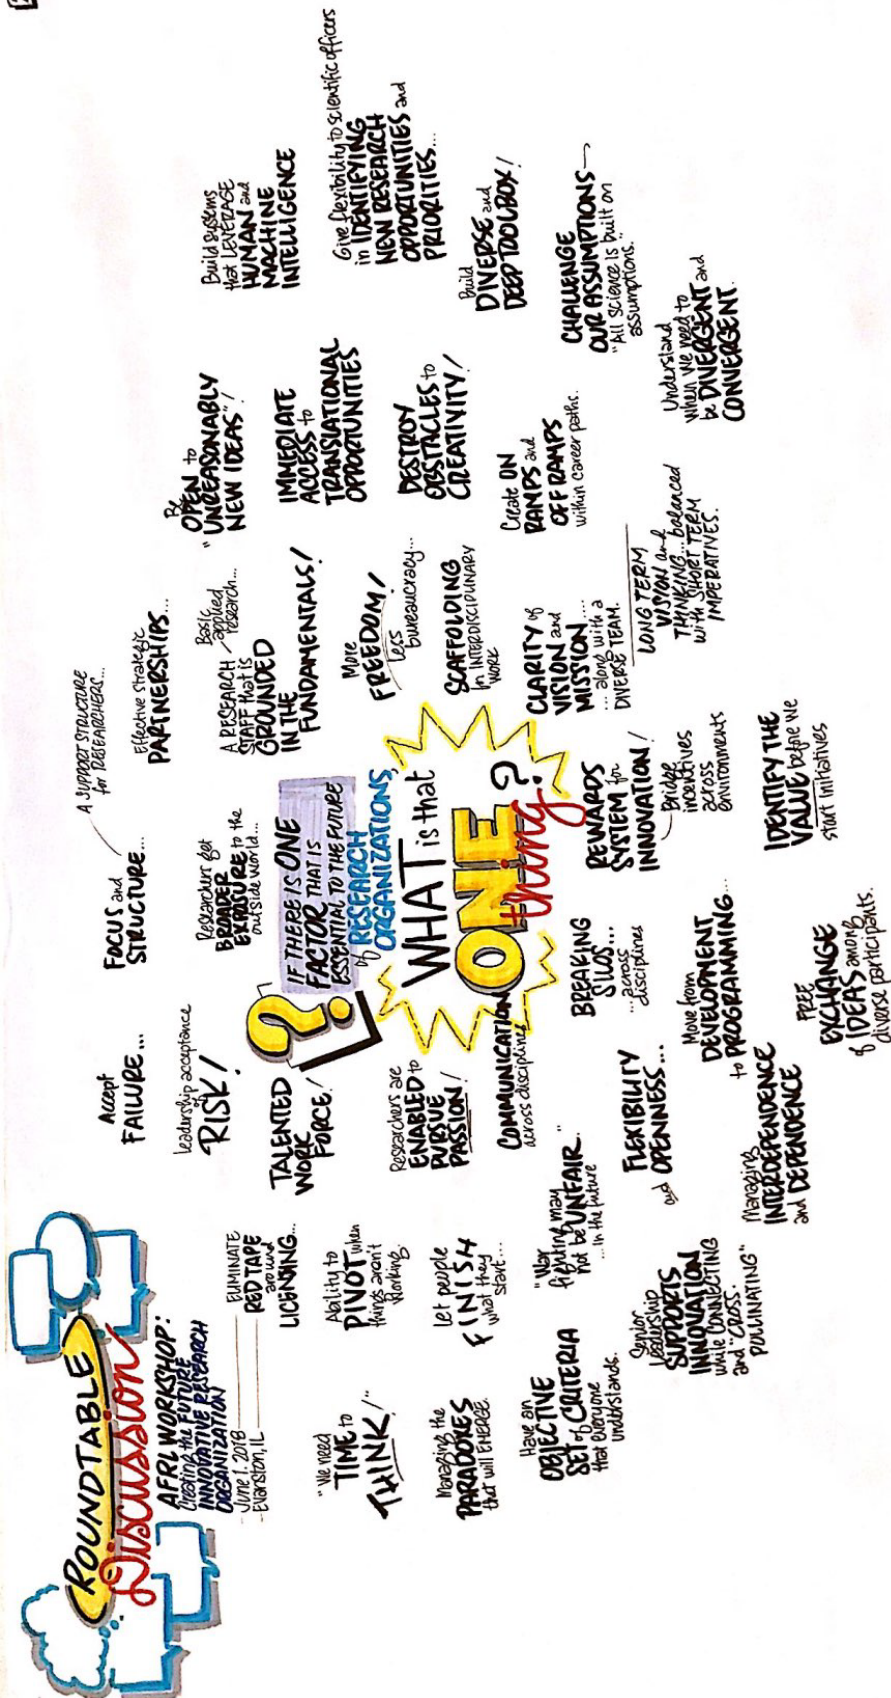 ROUNDTABLE
Discussion
AFRL WORKSHOP:
Creating the FUTURE
INNOVATIVE RESEARCH
ORGANIZATION
June 1, 2018
Evanston, IL
"We need
TIME to
THINK!"
Managing the
PARADOXES
that will EMERGE.
Have an
OBJECTIVE
SET of CRITERIA
that everyone
understands.
ELIMINATE
RED TAPE
around
LICENSING...
Ability to
PIVOT when
things aren't
working.
Let people
FINISH
what they
start...
"War
fighting may
not be UNFAIR."
...in the future
Senior
leadership
SUPPORTS
INNOVATION
while CONNECTING
and "CROSS.
POLLINATING"
Accept
FAILURE...
Leadership acceptance
of
RISK!
TALENTED
WORK
FORCE!
Researchers are
ENABLED to
PURSUE
PASSION!
COMMUNICATION
across disciplines
FLEXIBILITY
and OPENNESS...
Managing
INTERDEPENDENCE
and DEPENDENCE
FOCUS and
STRUCTURE...
A SUPPORT STRUCTURE
for RESEARCHERS...
Researchers get
BROADER
EXPOSURE to the
outside world...
?
IF THERE IS ONE
FACTOR THAT IS
ESSENTIAL TO THE FUTURE
of RESEARCH
ORGANIZATIONS,
WHAT is that
ONE
thing?
BREAKING
SILOS...
...across
disciplines
Move from
DEVELOPMENT
to PROGRAMMING...
FREE
EXCHANGE
of IDEAS among
diverse participants.
REWARDS
SYSTEM for
INNOVATION!
Bridge
incentives
across
environments
IDENTIFY THE
VALUE before we
start initiatives
Effective strategic
PARTNERSHIPS...
A RESEARCH
STAFF that is
GROUNDED
IN THE
FUNDAMENTALS!
Basic
applied
research...
More
FREEDOM!
less
bureaucracy...
SCAFFOLDING
In INTERDISCIPLINARY
WORK
CLARITY of
VISION and
MISSION....
... along with a
DIVERSE TEAM.
LONG TERM
VISION and
THINKING... balanced
with SHORT TERM
IMPERATIVES.
Be
OPEN to
"UNREASONABLY
NEW IDEAS"!
IMMEDIATE
ACCESS to
TRANSLATIONAL
OPPORTUNITIES
DESTROY
OBSTACLES to
CREATIVITY!
Create ON
RAMPS and
OFF RAMPS
within career paths.
Understand
when we need to
be DIVERGENT and
CONVERGENT.
Build systems
that LEVERAGE
HUMAN and
MACHINE
INTELLIGENCE
Give flexibility to scientific officers
in IDENTIFYING
NEW RESEARCH
OPPORTUNITIES and
PRIORITIES...
Build
DIVERSE and
DEEP TOOLBOX!
CHALLENGE
OUR ASSUMPTIONS—
"All science is built on
assumptions."